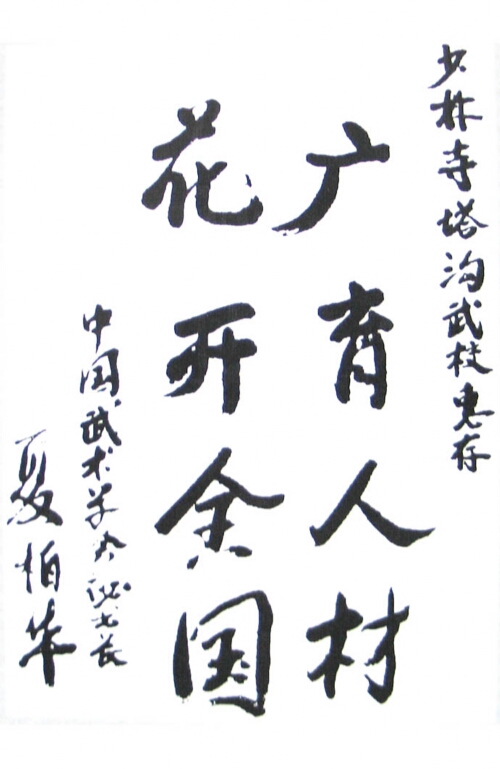 少林寺塔沟武校惠存
广育人材
花开全国
中国武术学会秘书长
夏柏华